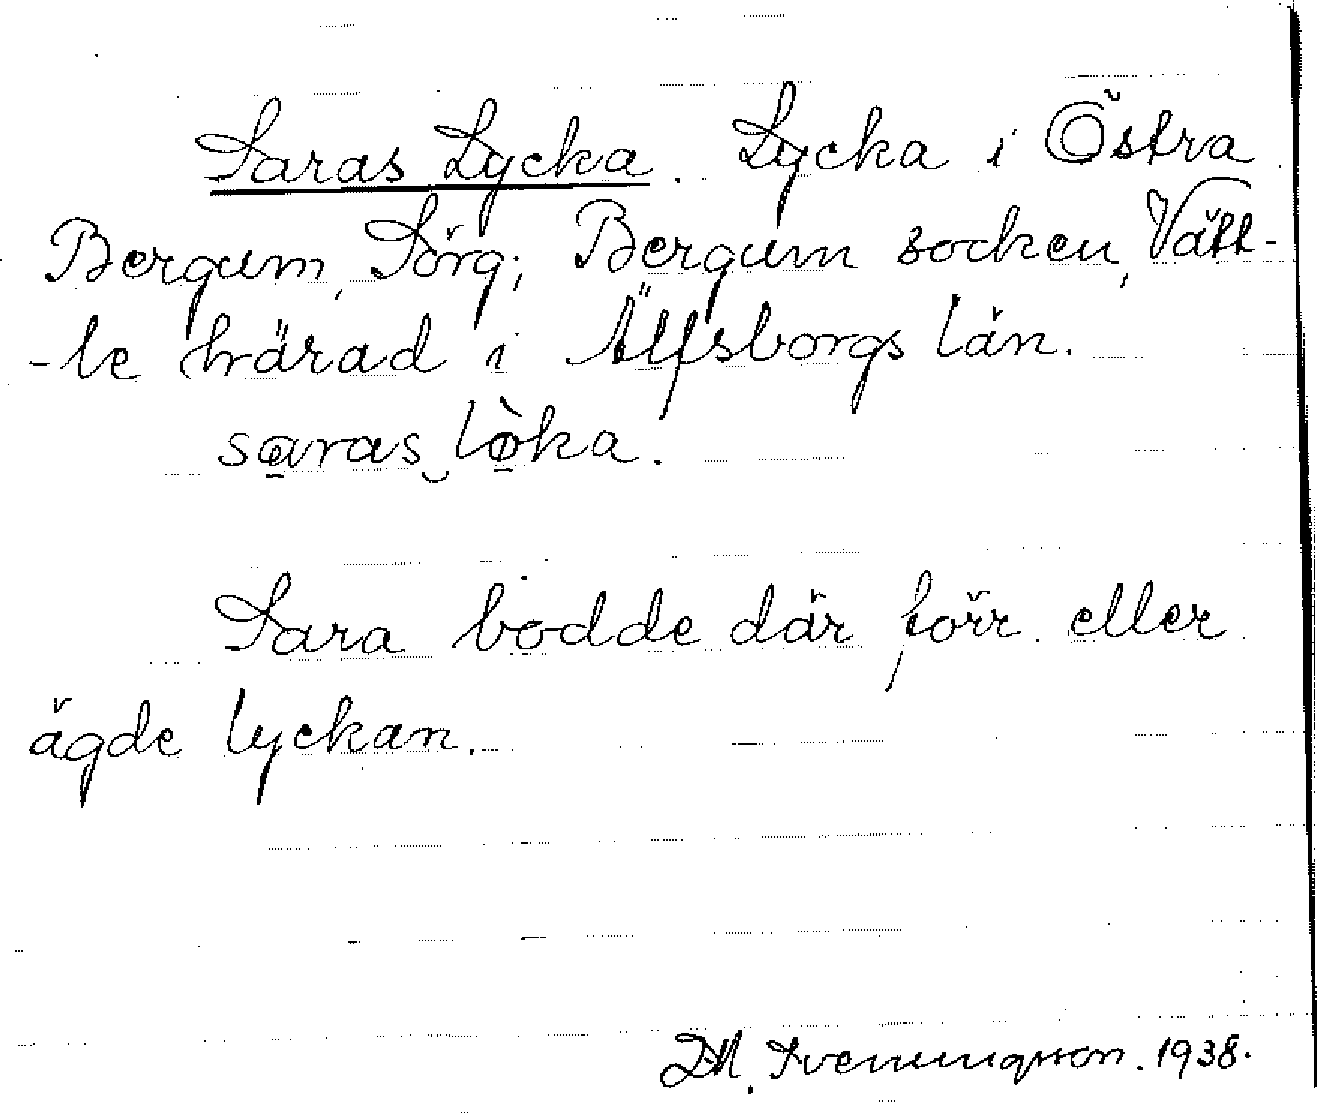 Saras Lycka. Lycka i Östra
Bergum, Sörg; Bergum socken, Vätt-
-le härad i Älfsborgs län.
saras‿lò̱ka.
Sara bodde där förr eller
ägde lyckan.
Svenningsson. 1938.